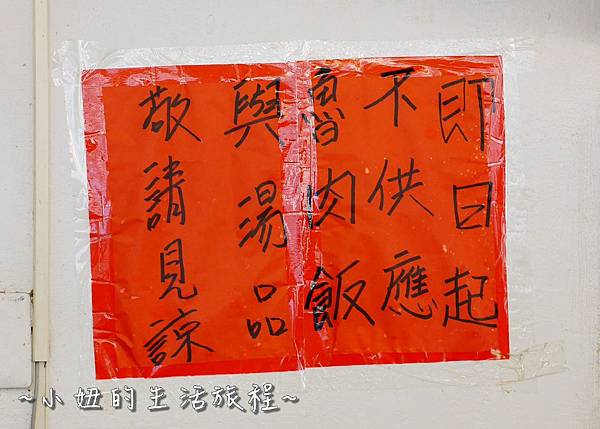 即日起
不供應
魯肉飯
與湯品
敬請見諒
~小妞的生活旅程~